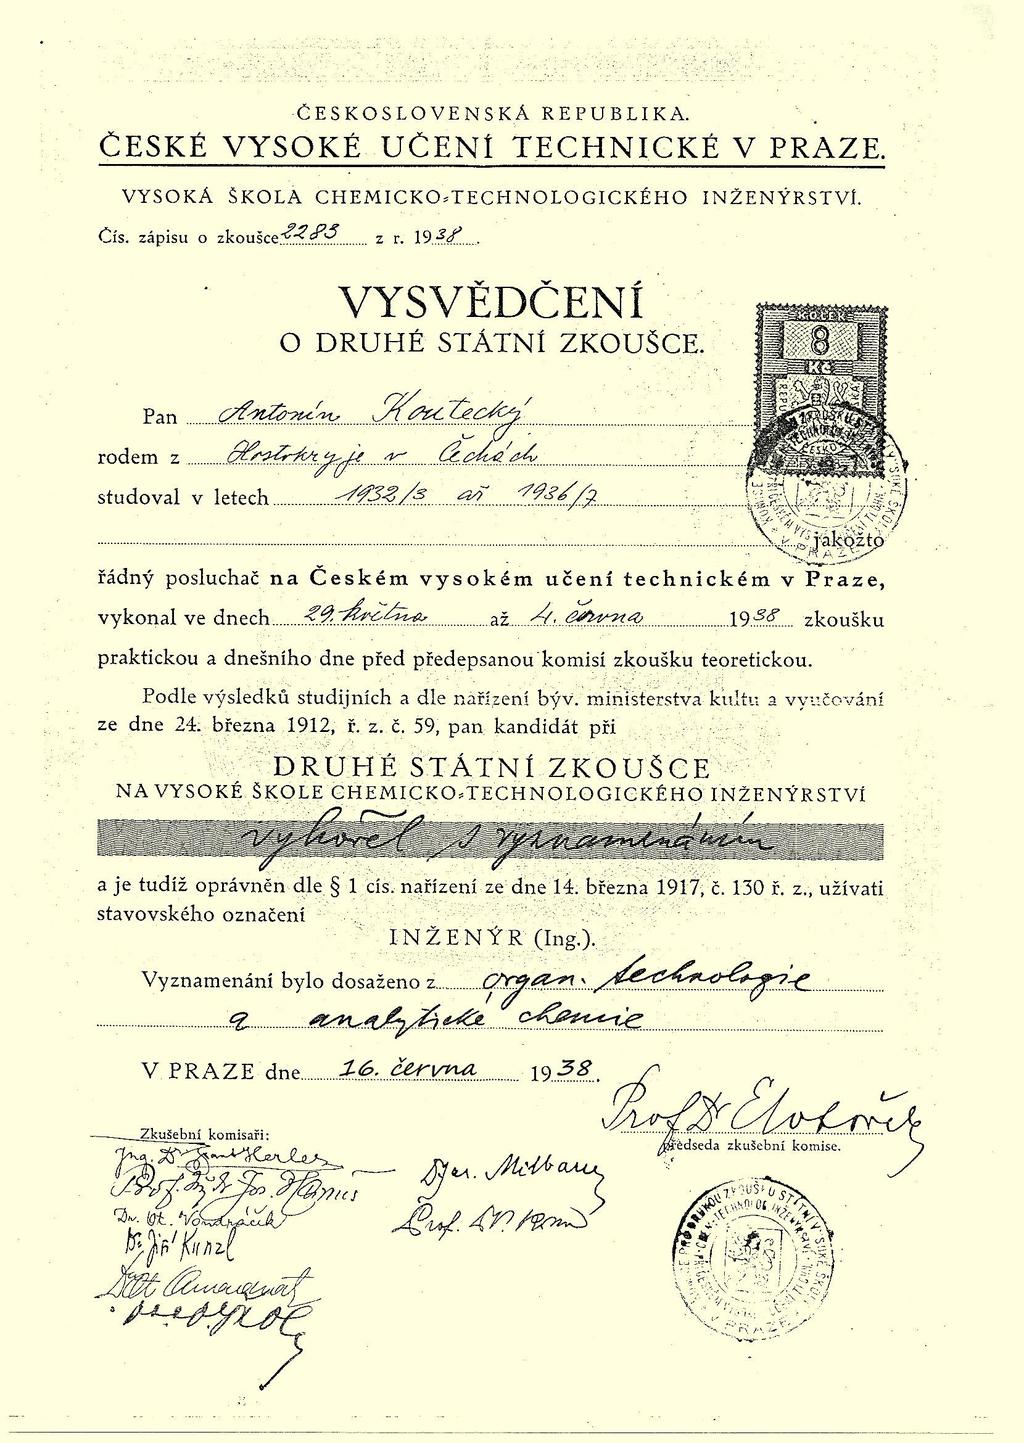 ČESKOSLOVENSKÁ REPUBLIKA.
ČESKÉ VYSOKÉ UČENÍ TECHNICKÉ V PRAZE.
VYSOKÁ ŠKOLA CHEMICKO-TECHNOLOGICKÉHO INŽENÝRSTVÍ.
Čís. zápisu o zkoušce 2283 z r. 1938.
VYSVĚDČENÍ
O DRUHÉ STÁTNÍ ZKOUŠCE.
KOLEK
8
Kč
Pan Antonín Koutecký
rodem z Hostokryje v Čechách
studoval v letech 1932/3 až 1936/7
jakožto
řádný posluchač na Českém vysokém učení technickém v Praze,
vykonal ve dnech 29. května až 4. června 1938 zkoušku
praktickou a dnešního dne před předepsanou komisí zkoušku teoretickou.
Podle výsledků studijních a dle nařízení býv. ministerstva kultu a vyučování
ze dne 24. března 1912, ř. z. č. 59, pan kandidát při
DRUHÉ STÁTNÍ ZKOUŠCE
NA VYSOKÉ ŠKOLE CHEMICKO-TECHNOLOGICKÉHO INŽENÝRSTVÍ
vyhověl s vyznamenáním
a je tudíž oprávněn dle § 1 cís. nařízení ze dne 14. března 1917, č. 130 ř. z., užívati
stavovského označení
INŽENÝR (Ing.).
Vyznamenání bylo dosaženo z organ. technologie
a analytické chemie
V PRAZE dne 16. června 1938.
Prof Dr E Votoček
předseda zkušební komise.
Zkušební komisaři:
Ing. Dr
Prof. Dr Jos. Hanuš
Dr. Vondráček
Dr Jiří Kunzl
Milbauer
Prof.